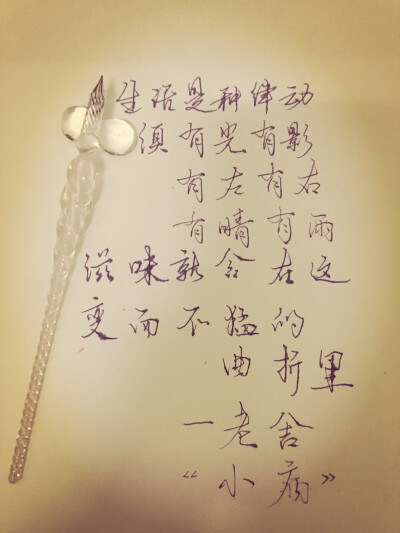 生活是种律动
须有光有影
有左有右
有晴有雨
滋味就含在这
变而不猛的
曲折里
一老舍
“小病”